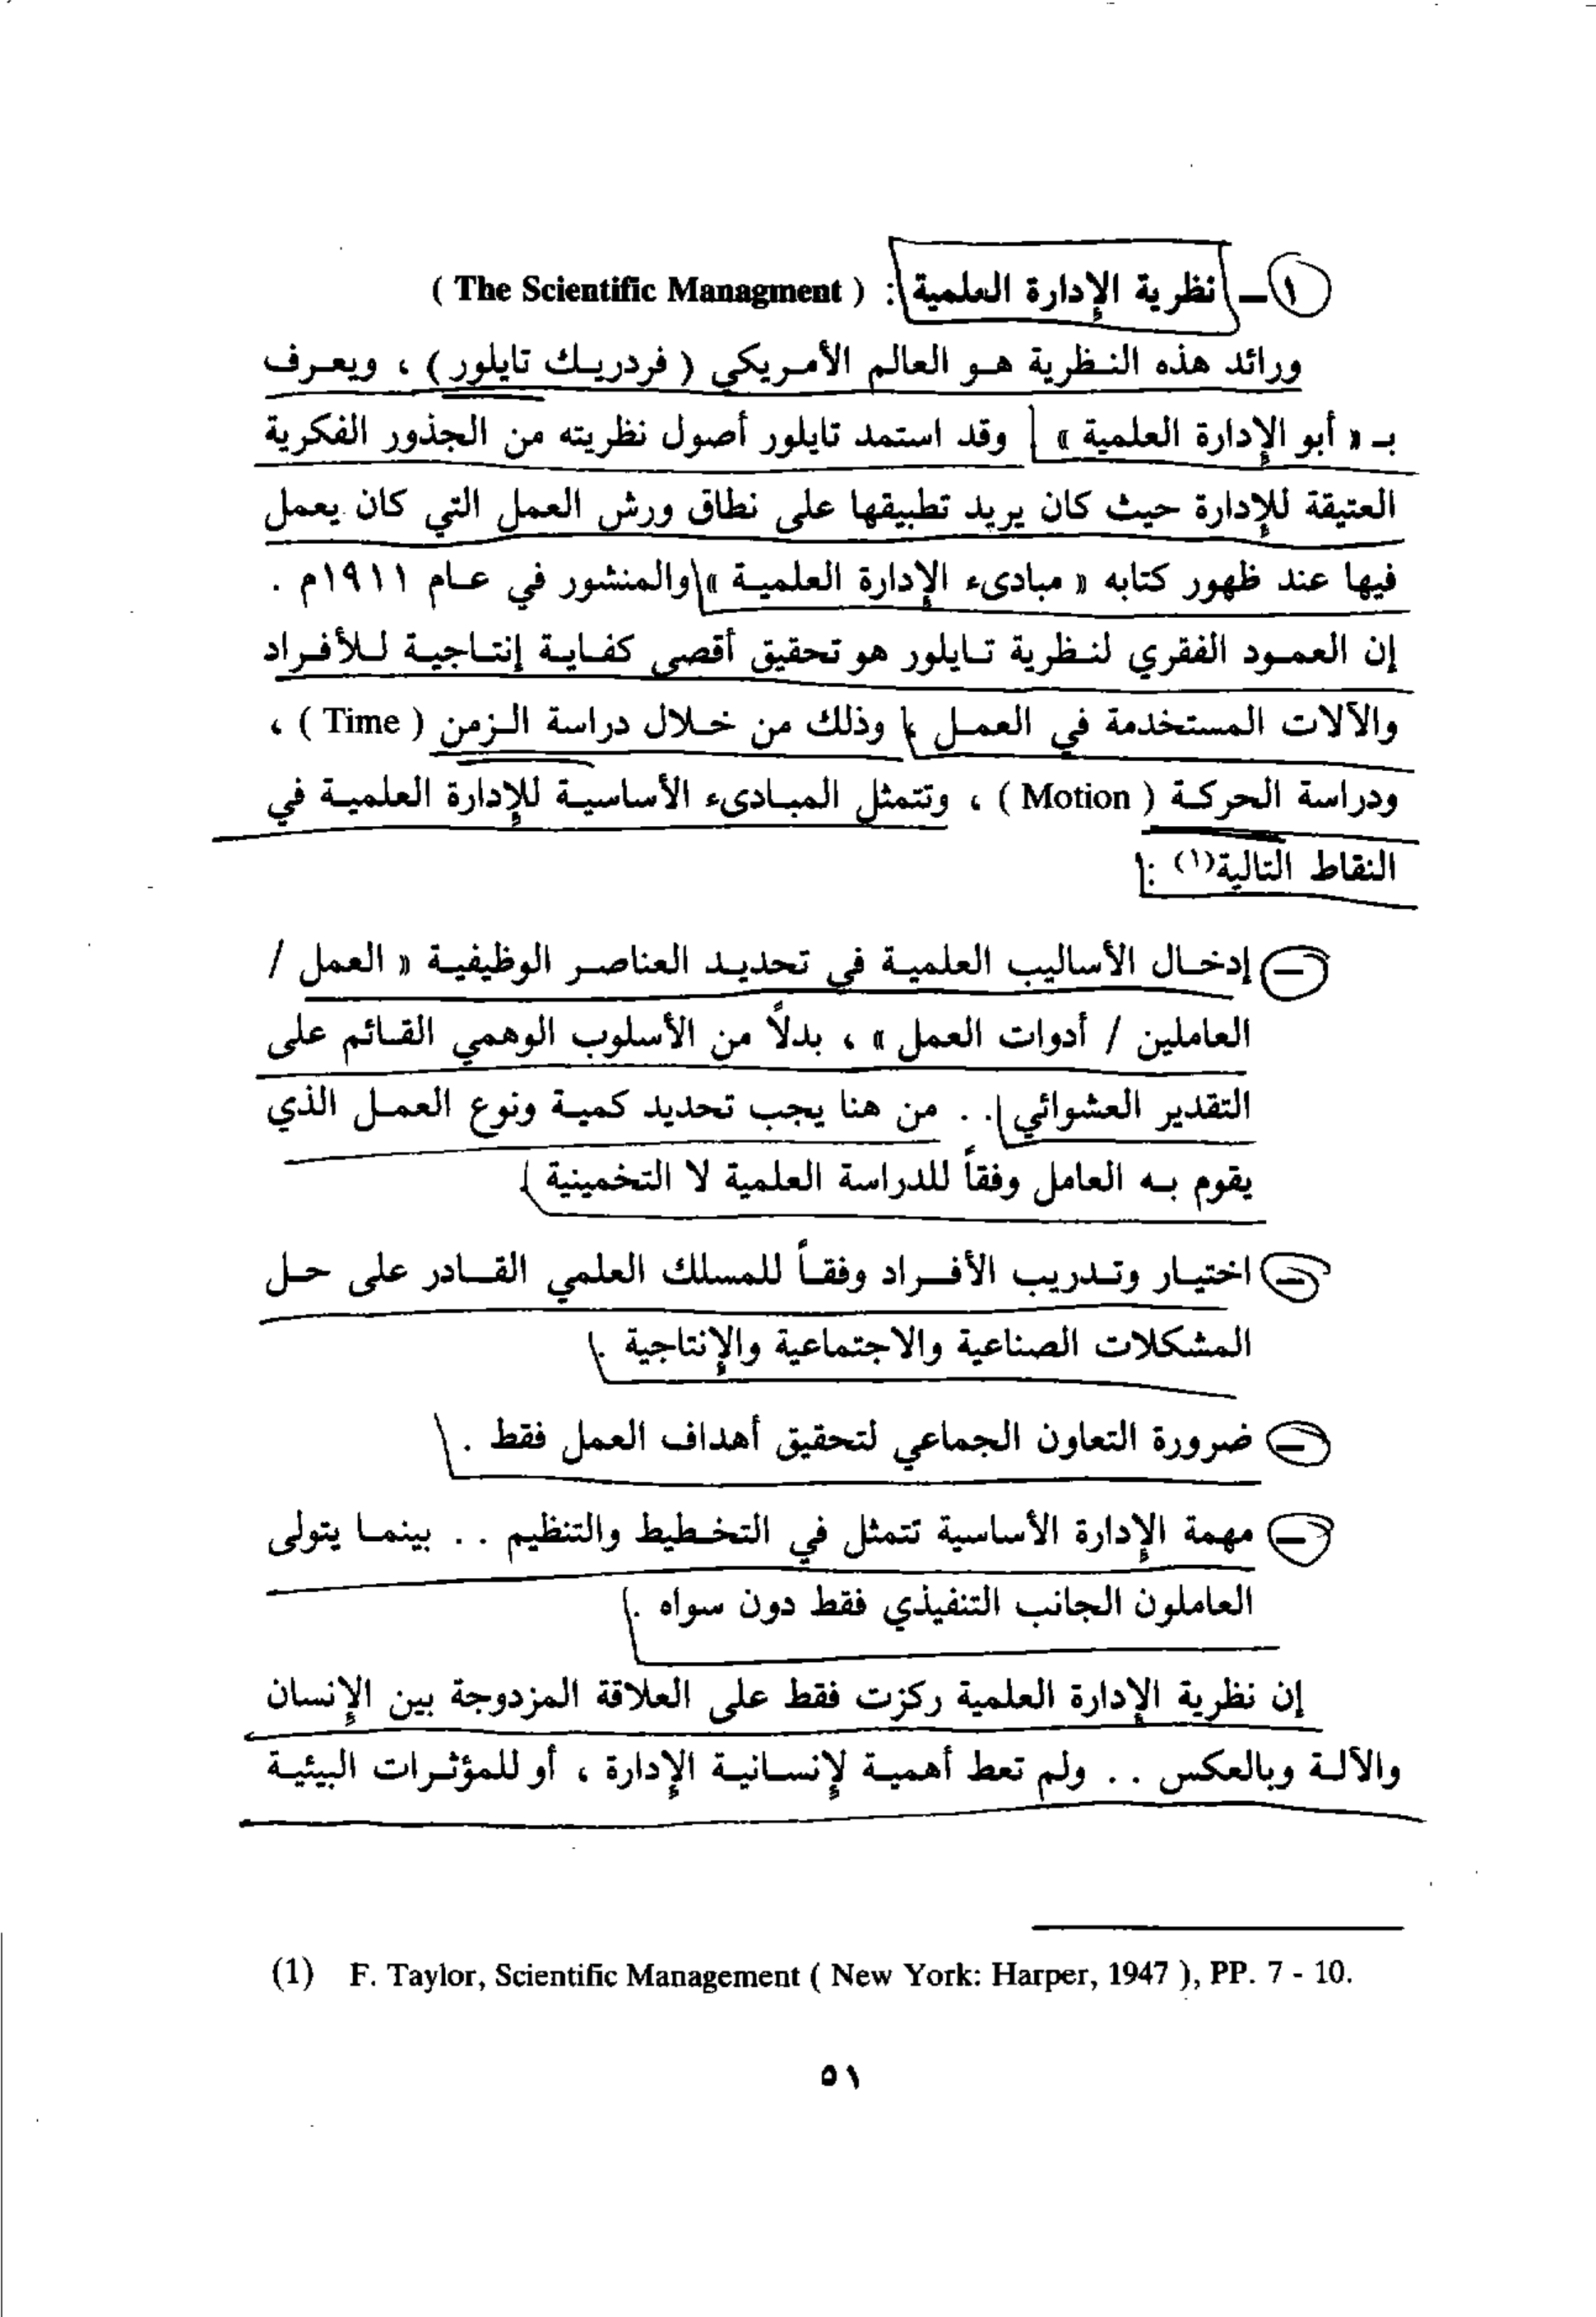 ١ – نظرية الإدارة العلمية : ( The Scientific Managment )
ورائد هذه النظرية هو العالم الأمريكي ( فردريك تايلور ) ، ويعرف
بـ « أبو الإدارة العلمية » وقد استمد تايلور أصول نظريته من الجذور الفكرية
العتيقة للإدارة حيث كان يريد تطبيقها على نطاق ورش العمل التي كان يعمل
فيها عند ظهور كتابه « مبادىء الإدارة العلمية » والمنشور في عام ١٩١١م .
إن العمود الفقري لنظرية تايلور هو تحقيق أقصى كفاية إنتاجية للأفراد
والآلات المستخدمة في العمل ، وذلك من خلال دراسة الزمن ( Time ) ،
ودراسة الحركة ( Motion ) ، وتتمثل المبادىء الأساسية للإدارة العلمية في
النقاط التالية(١) :
– إدخال الأساليب العلمية في تحديد العناصر الوظيفية « العمل /
العاملين / أدوات العمل » ، بدلاً من الأسلوب الوهمي القائم على
التقدير العشوائي . . من هنا يجب تحديد كمية ونوع العمل الذي
يقوم به العامل وفقاً للدراسة العلمية لا التخمينية .
– اختيار وتدريب الأفراد وفقاً للمسلك العلمي القادر على حل
المشكلات الصناعية والاجتماعية والإنتاجية .
– ضرورة التعاون الجماعي لتحقيق أهداف العمل فقط .
– مهمة الإدارة الأساسية تتمثل في التخطيط والتنظيم . . بينما يتولى
العاملون الجانب التنفيذي فقط دون سواه .
إن نظرية الإدارة العلمية ركزت فقط على العلاقة المزدوجة بين الإنسان
والآلة وبالعكس . . ولم تعط أهمية لإنسانية الإدارة ، أو للمؤثرات البيئية
(1) F. Taylor, Scientific Management ( New York: Harper, 1947 ), PP. 7 - 10.
٥١